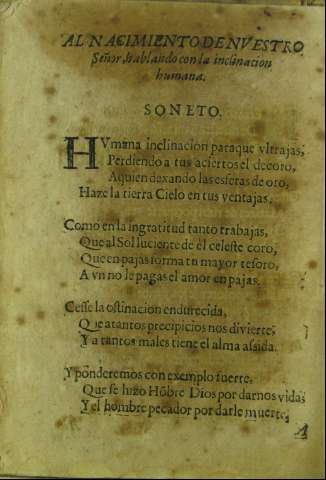 AL NACIMIENTO DE NVESTRO
Señor, hablando con la inclinacion
humana.
SONETO.
HVmana inclinacion paraque vltrajas,
Perdiendo a tus aciertos el decoro,
A quien dexando las esferas de oro,
Haze la tierra Cielo en tus ventajas.
Como en la ingratitud tanto trabajas,
Que al Sol luciente de el celeste coro,
Que en pajas forma tu mayor tesoro,
A vn no le pagas el amor en pajas.
Cesse la ostinacion endurecida,
Que a tantos precipicios nos divierte,
Y a tantos males tiene el alma asida.
Y ponderemos con exemplo fuerte,
Que se hizo Hõbre Dios por darnos vida,
Y el hombre pecador por darle muerte,
A